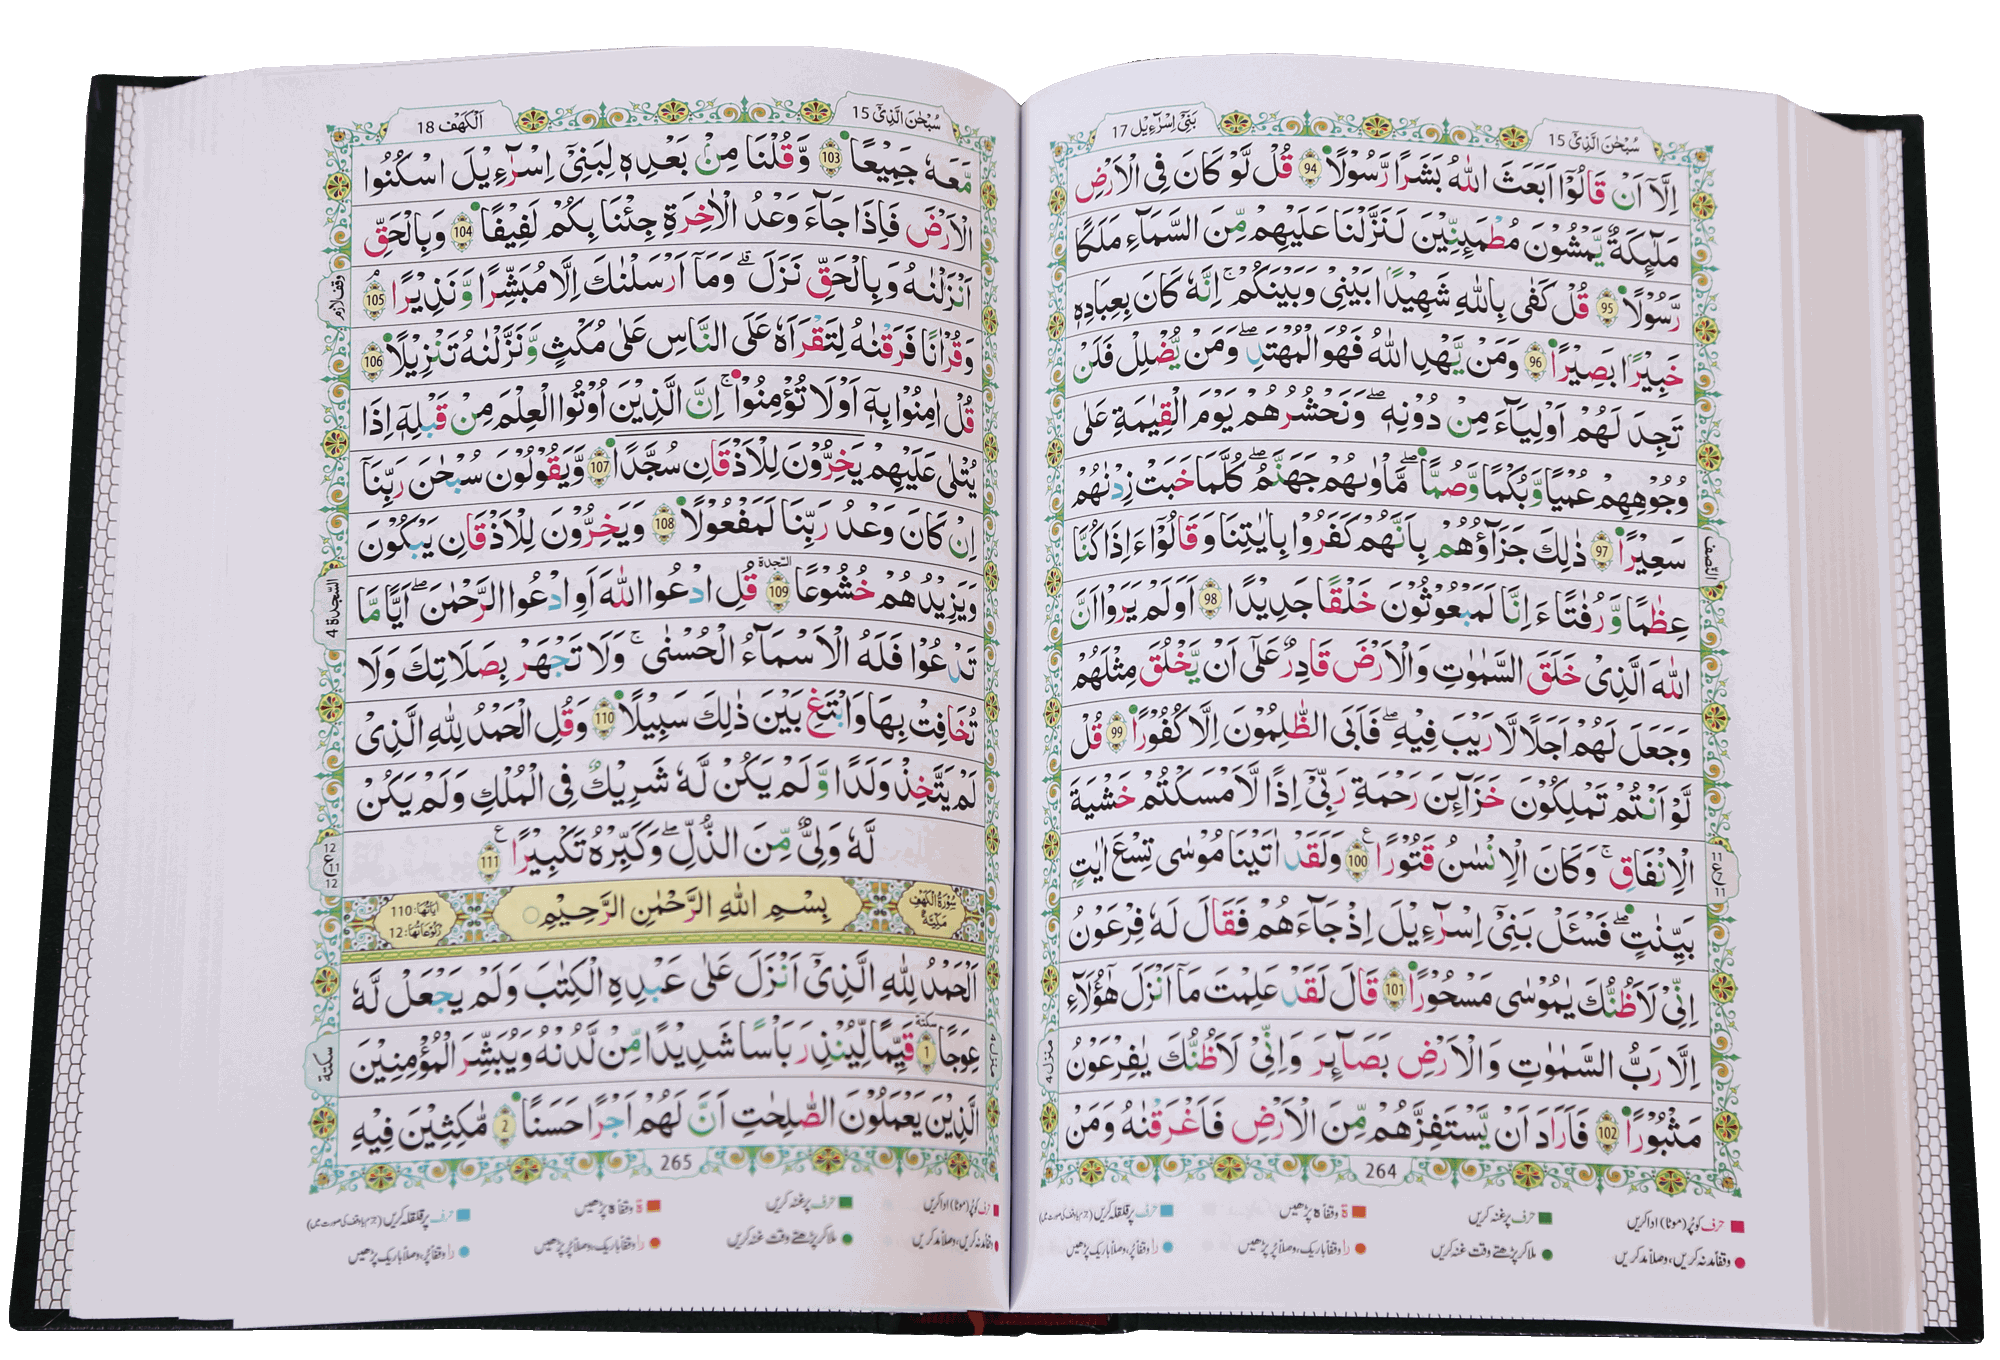 بَنِیْۤ اِسْرَآءِیْل 17
سُبْحٰنَ الَّذِیْۤ 15
اِلَّاۤ اَنْ قَالُوْۤا اَبَعَثَ اللّٰهُ بَشَرًا رَّسُوْلًا 94 قُلْ لَّوْ كَانَ فِی الْاَرْضِ
مَلٰٓىِٕكَةٌ یَّمْشُوْنَ مُطْمَىِٕنِّیْنَ لَنَزَّلْنَا عَلَیْهِمْ مِّنَ السَّمَآءِ مَلَكًا
رَّسُوْلًا 95 قُلْ كَفٰی بِاللّٰهِ شَهِیْدًۢا بَیْنِیْ وَبَیْنَكُمْ ۚ اِنَّهٗ كَانَ بِعِبَادِهٖ
خَبِیْرًۢا بَصِیْرًا 96 وَمَنْ یَّهْدِ اللّٰهُ فَهُوَ الْمُهْتَدِ ۖ وَمَنْ یُّضْلِلْ فَلَنْ
تَجِدَ لَهُمْ اَوْلِیَآءَ مِنْ دُوْنِهٖ ۖ وَنَحْشُرُهُمْ یَوْمَ الْقِیٰمَةِ عَلٰی
وُجُوْهِهِمْ عُمْیًا وَّبُكْمًا وَّصُمًّا ۖ مَاْوٰىهُمْ جَهَنَّمُ ۖ كُلَّمَا خَبَتْ زِدْنٰهُمْ
سَعِیْرًا 97 ذٰلِكَ جَزَآؤُهُمْ بِاَنَّهُمْ كَفَرُوْا بِاٰیٰتِنَا وَقَالُوْۤا ءَاِذَا كُنَّا
عِظَامًا وَّرُفَاتًا ءَاِنَّا لَمَبْعُوْثُوْنَ خَلْقًا جَدِیْدًا 98 اَوَلَمْ یَرَوْا اَنَّ
اللّٰهَ الَّذِیْ خَلَقَ السَّمٰوٰتِ وَالْاَرْضَ قَادِرٌ عَلٰۤی اَنْ یَّخْلُقَ مِثْلَهُمْ
وَجَعَلَ لَهُمْ اَجَلًا لَّا رَیْبَ فِیْهِ ۖ فَاَبَی الظّٰلِمُوْنَ اِلَّا كُفُوْرًا 99 قُلْ
لَّوْ اَنْتُمْ تَمْلِكُوْنَ خَزَآىِٕنَ رَحْمَةِ رَبِّیْۤ اِذًا لَّاَمْسَكْتُمْ خَشْیَةَ
الْاِنْفَاقِ ۚ وَكَانَ الْاِنْسَانُ قَتُوْرًا 100 وَلَقَدْ اٰتَیْنَا مُوْسٰی تِسْعَ اٰیٰتٍۭ
بَیِّنٰتٍ ۖ فَسْـَٔلْ بَنِیْۤ اِسْرَآءِیْلَ اِذْ جَآءَهُمْ فَقَالَ لَهٗ فِرْعَوْنُ
اِنِّیْ لَاَظُنُّكَ یٰمُوْسٰی مَسْحُوْرًا 101 قَالَ لَقَدْ عَلِمْتَ مَاۤ اَنْزَلَ هٰۤؤُلَآءِ
اِلَّا رَبُّ السَّمٰوٰتِ وَالْاَرْضِ بَصَآىِٕرَ وَاِنِّیْ لَاَظُنُّكَ یٰفِرْعَوْنُ
مَثْبُوْرًا 102 فَاَرَادَ اَنْ یَّسْتَفِزَّهُمْ مِّنَ الْاَرْضِ فَاَغْرَقْنٰهُ وَمَنْ
النّصف
ع 11 11
منزل 4
264
حرف کو پُر (موٹا) ادا کریں
حرف پر غنہ کریں
ة وقفاً ہ پڑھیں
حرف پر قلقلہ کریں
وقفاً مد نہ کریں، وصلاً مد کریں
ملا کر پڑھتے وقت غنہ کریں
را وقفاً باریک، وصلاً پُر پڑھیں
را وقفاً پُر، وصلاً باریک پڑھیں
سُبْحٰنَ الَّذِیْۤ 15
اَلْكَهْف 18
مَّعَهٗ جَمِیْعًا 103 وَّقُلْنَا مِنْۢ بَعْدِهٖ لِبَنِیْۤ اِسْرَآءِیْلَ اسْكُنُوا
الْاَرْضَ فَاِذَا جَآءَ وَعْدُ الْاٰخِرَةِ جِئْنَا بِكُمْ لَفِیْفًا 104 وَبِالْحَقِّ
اَنْزَلْنٰهُ وَبِالْحَقِّ نَزَلَ ۗ وَمَاۤ اَرْسَلْنٰكَ اِلَّا مُبَشِّرًا وَّنَذِیْرًا 105
وَقُرْاٰنًا فَرَقْنٰهُ لِتَقْرَاَهٗ عَلَی النَّاسِ عَلٰی مُكْثٍ وَّنَزَّلْنٰهُ تَنْزِیْلًا 106
قُلْ اٰمِنُوْا بِهٖۤ اَوْ لَا تُؤْمِنُوْا ۚ اِنَّ الَّذِیْنَ اُوْتُوا الْعِلْمَ مِنْ قَبْلِهٖۤ اِذَا
یُتْلٰی عَلَیْهِمْ یَخِرُّوْنَ لِلْاَذْقَانِ سُجَّدًا 107 وَّیَقُوْلُوْنَ سُبْحٰنَ رَبِّنَاۤ
اِنْ كَانَ وَعْدُ رَبِّنَا لَمَفْعُوْلًا 108 وَیَخِرُّوْنَ لِلْاَذْقَانِ یَبْكُوْنَ
وَیَزِیْدُهُمْ خُشُوْعًا 109 السّجدة قُلِ ادْعُوا اللّٰهَ اَوِ ادْعُوا الرَّحْمٰنَ ۖ اَیًّا مَّا
تَدْعُوْا فَلَهُ الْاَسْمَآءُ الْحُسْنٰی ۚ وَلَا تَجْهَرْ بِصَلَاتِكَ وَلَا
تُخَافِتْ بِهَا وَابْتَغِ بَیْنَ ذٰلِكَ سَبِیْلًا 110 وَقُلِ الْحَمْدُ لِلّٰهِ الَّذِیْ
لَمْ یَتَّخِذْ وَلَدًا وَّلَمْ یَكُنْ لَّهٗ شَرِیْكٌ فِی الْمُلْكِ وَلَمْ یَكُنْ
لَّهٗ وَلِیٌّ مِّنَ الذُّلِّ ۖ وَكَبِّرْهُ تَكْبِیْرًا 111
سُوْرَةُ الْكَهْفِ مَكِّیَّةٌ
بِسْمِ اللّٰهِ الرَّحْمٰنِ الرَّحِیْمِ
اٰیَاتُهَا: 110
رُكُوْعَاتُهَا: 12
اَلْحَمْدُ لِلّٰهِ الَّذِیْۤ اَنْزَلَ عَلٰی عَبْدِهِ الْكِتٰبَ وَلَمْ یَجْعَلْ لَّهٗ
عِوَجًا 1 سكتة قَیِّمًا لِّیُنْذِرَ بَاْسًا شَدِیْدًا مِّنْ لَّدُنْهُ وَیُبَشِّرَ الْمُؤْمِنِیْنَ
الَّذِیْنَ یَعْمَلُوْنَ الصّٰلِحٰتِ اَنَّ لَهُمْ اَجْرًا حَسَنًا 2 مَّاكِثِیْنَ فِیْهِ
وقف لازم
السّجدة 4
ع 12 11 12
سكتة
منزل 4
265
حرف کو پُر (موٹا) ادا کریں
حرف پر غنہ کریں
ة وقفاً ہ پڑھیں
حرف پر قلقلہ کریں
وقفاً مد نہ کریں، وصلاً مد کریں
ملا کر پڑھتے وقت غنہ کریں
را وقفاً باریک، وصلاً پُر پڑھیں
را وقفاً پُر، وصلاً باریک پڑھیں